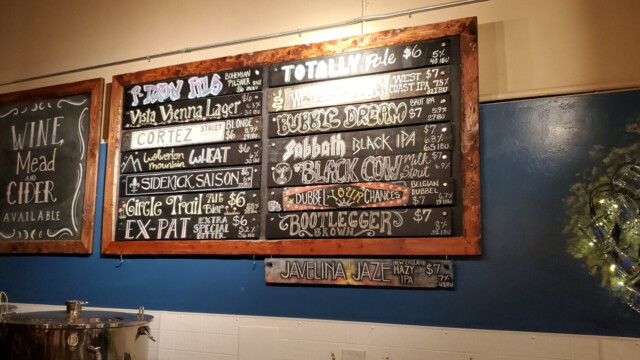 WINE,
Mead
AND
CIDER
AVAILABLE
PILS BOHEMIAN
PILSNER
Vista Vienna Lager $6
CORTEZ STREET BLONDE
$6
Wolverton
mountain WHEAT $6
SIDEKICK SAISON $6
Circle Trail Alt
Bier $6
EX-PAT EXTRA
SPECIAL
BITTER $6
5.2%
TOTALLY Pale $6 5%
WEST
COAST IPA $7
BUBBLE DREAM BRUT IPA
$7
Sabbath BLACK IPA $7
6.8%
65 IBU
BLACK COW Milk
Stout $7
DUBBEL LOZIR CHANCES BELGIAN
DUBBEL $7
BOOTLEGGER
BROWN $7
8%
JAVELINA JAZE NEW ENGLAND
HAZY
IPA $7
7%